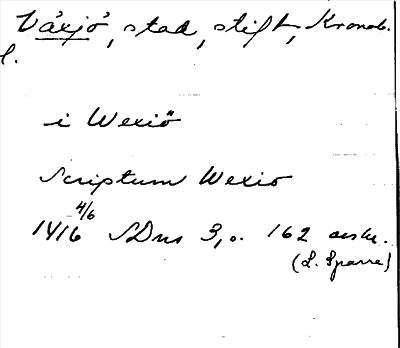 Växjö, stad, stift, Kronob.
l.
i Wexiö
Scriptum Wexio
1416 4/6 SDns 3, o. 162 avskr.
(L. Sparre)